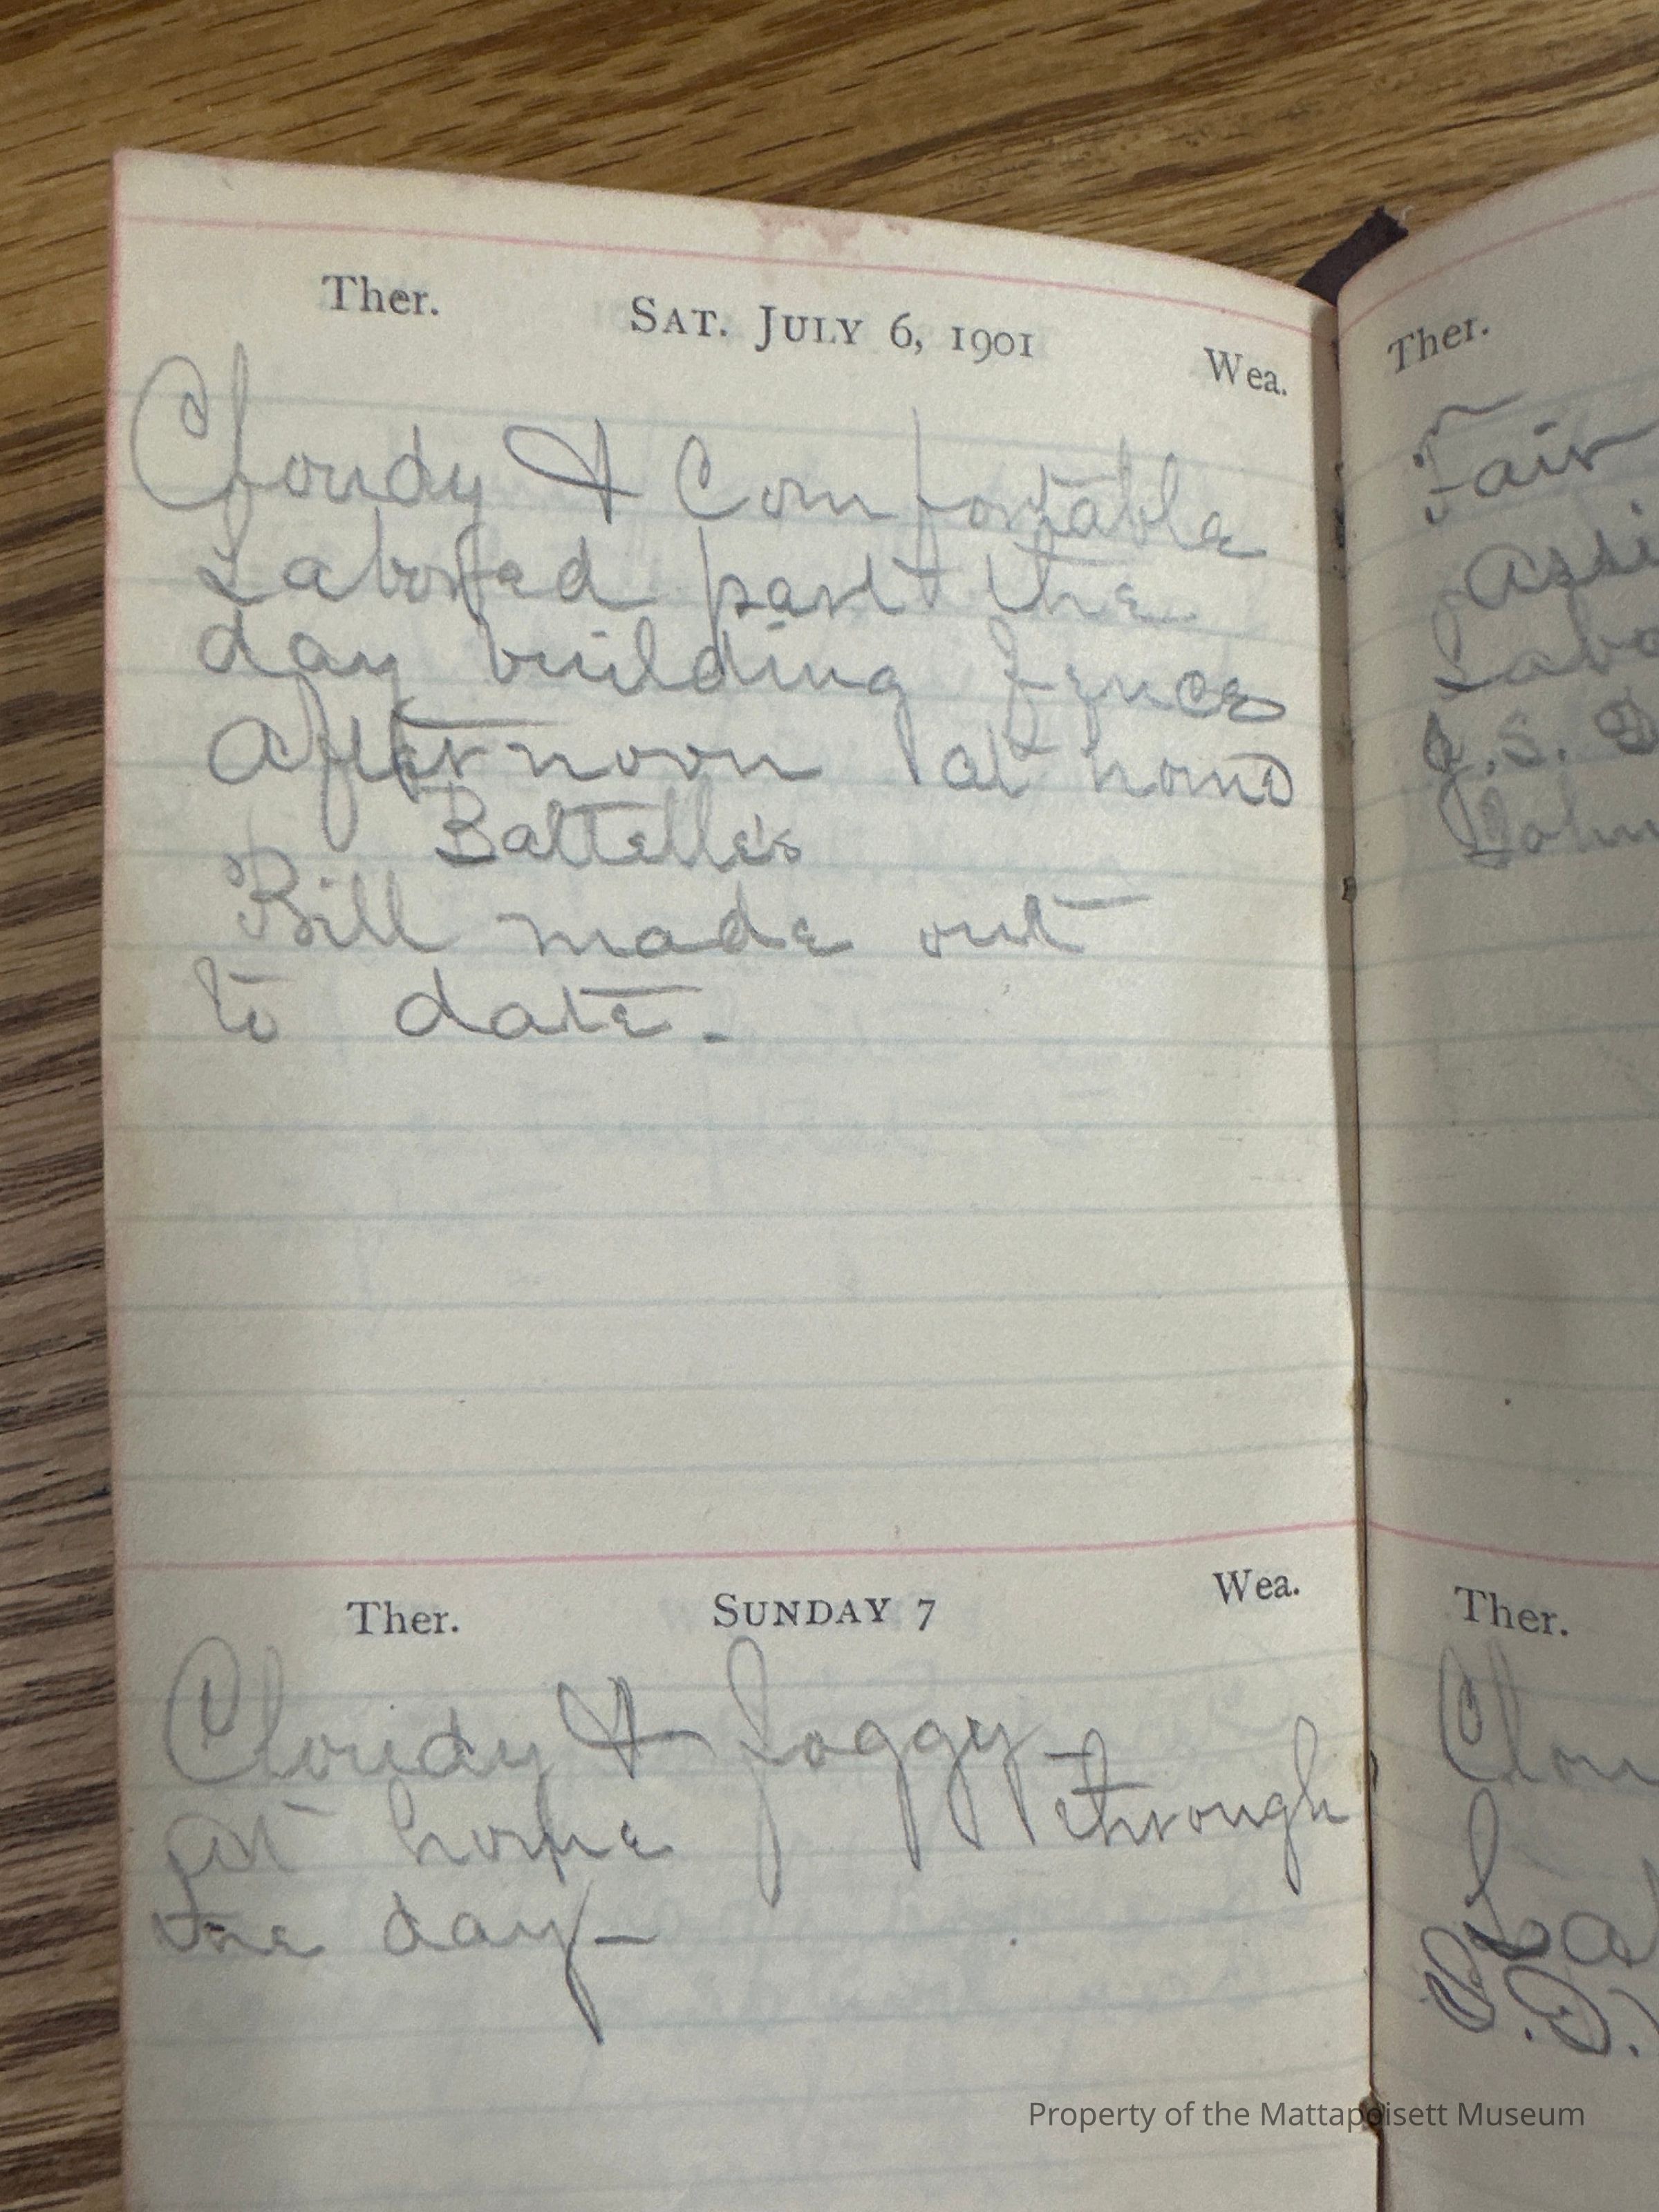 Ther. SAT. JULY 6, 1901 Wea.
Cloudy & Comfortable
Labored part the
day building fence
Afternoon at home
Battelle's
Bill made out
to date.
Ther. SUNDAY 7 Wea.
Cloudy & foggy
at home through
the day—
Ther.
Fair
assi
Labo
J.S.
John
Ther.
Clou
La
Property of the Mattapoisett Museum